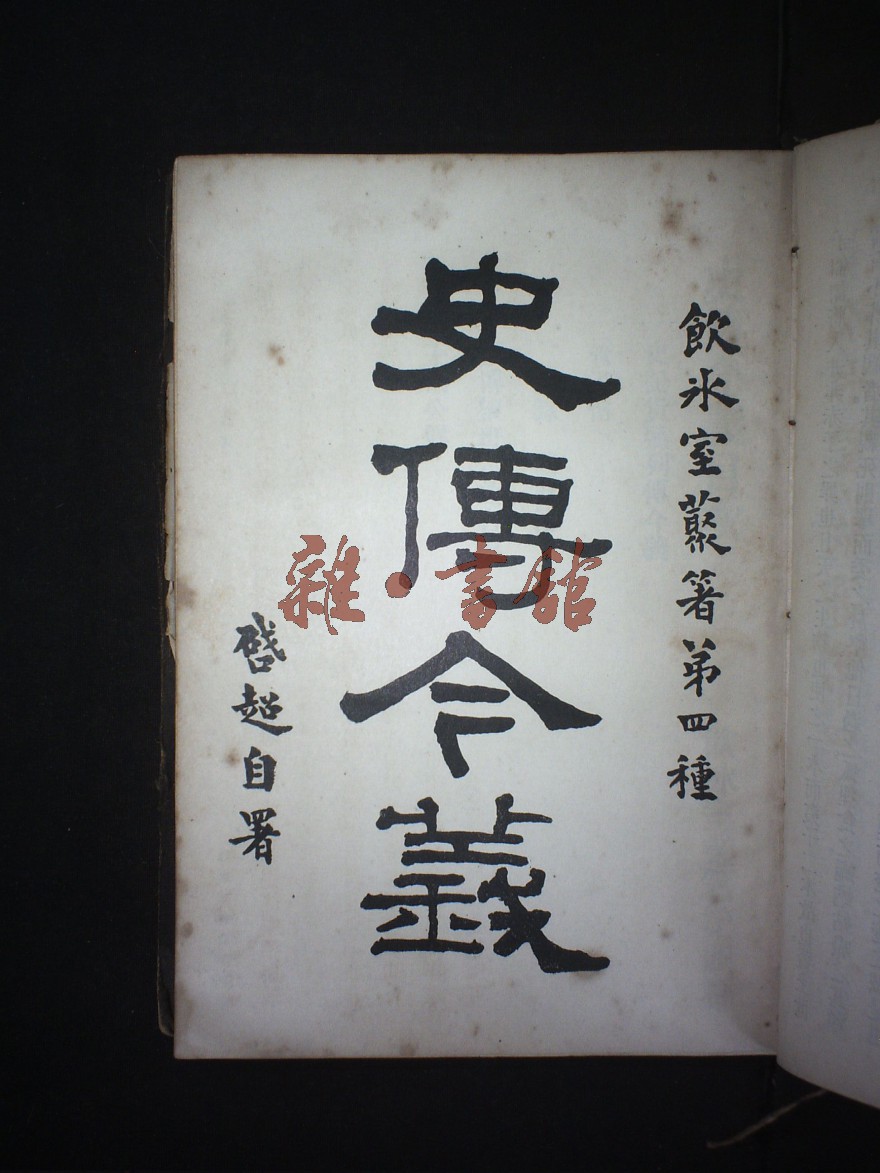 飲氷室叢著第四種
史傳今義
啓超自署
雜·書館